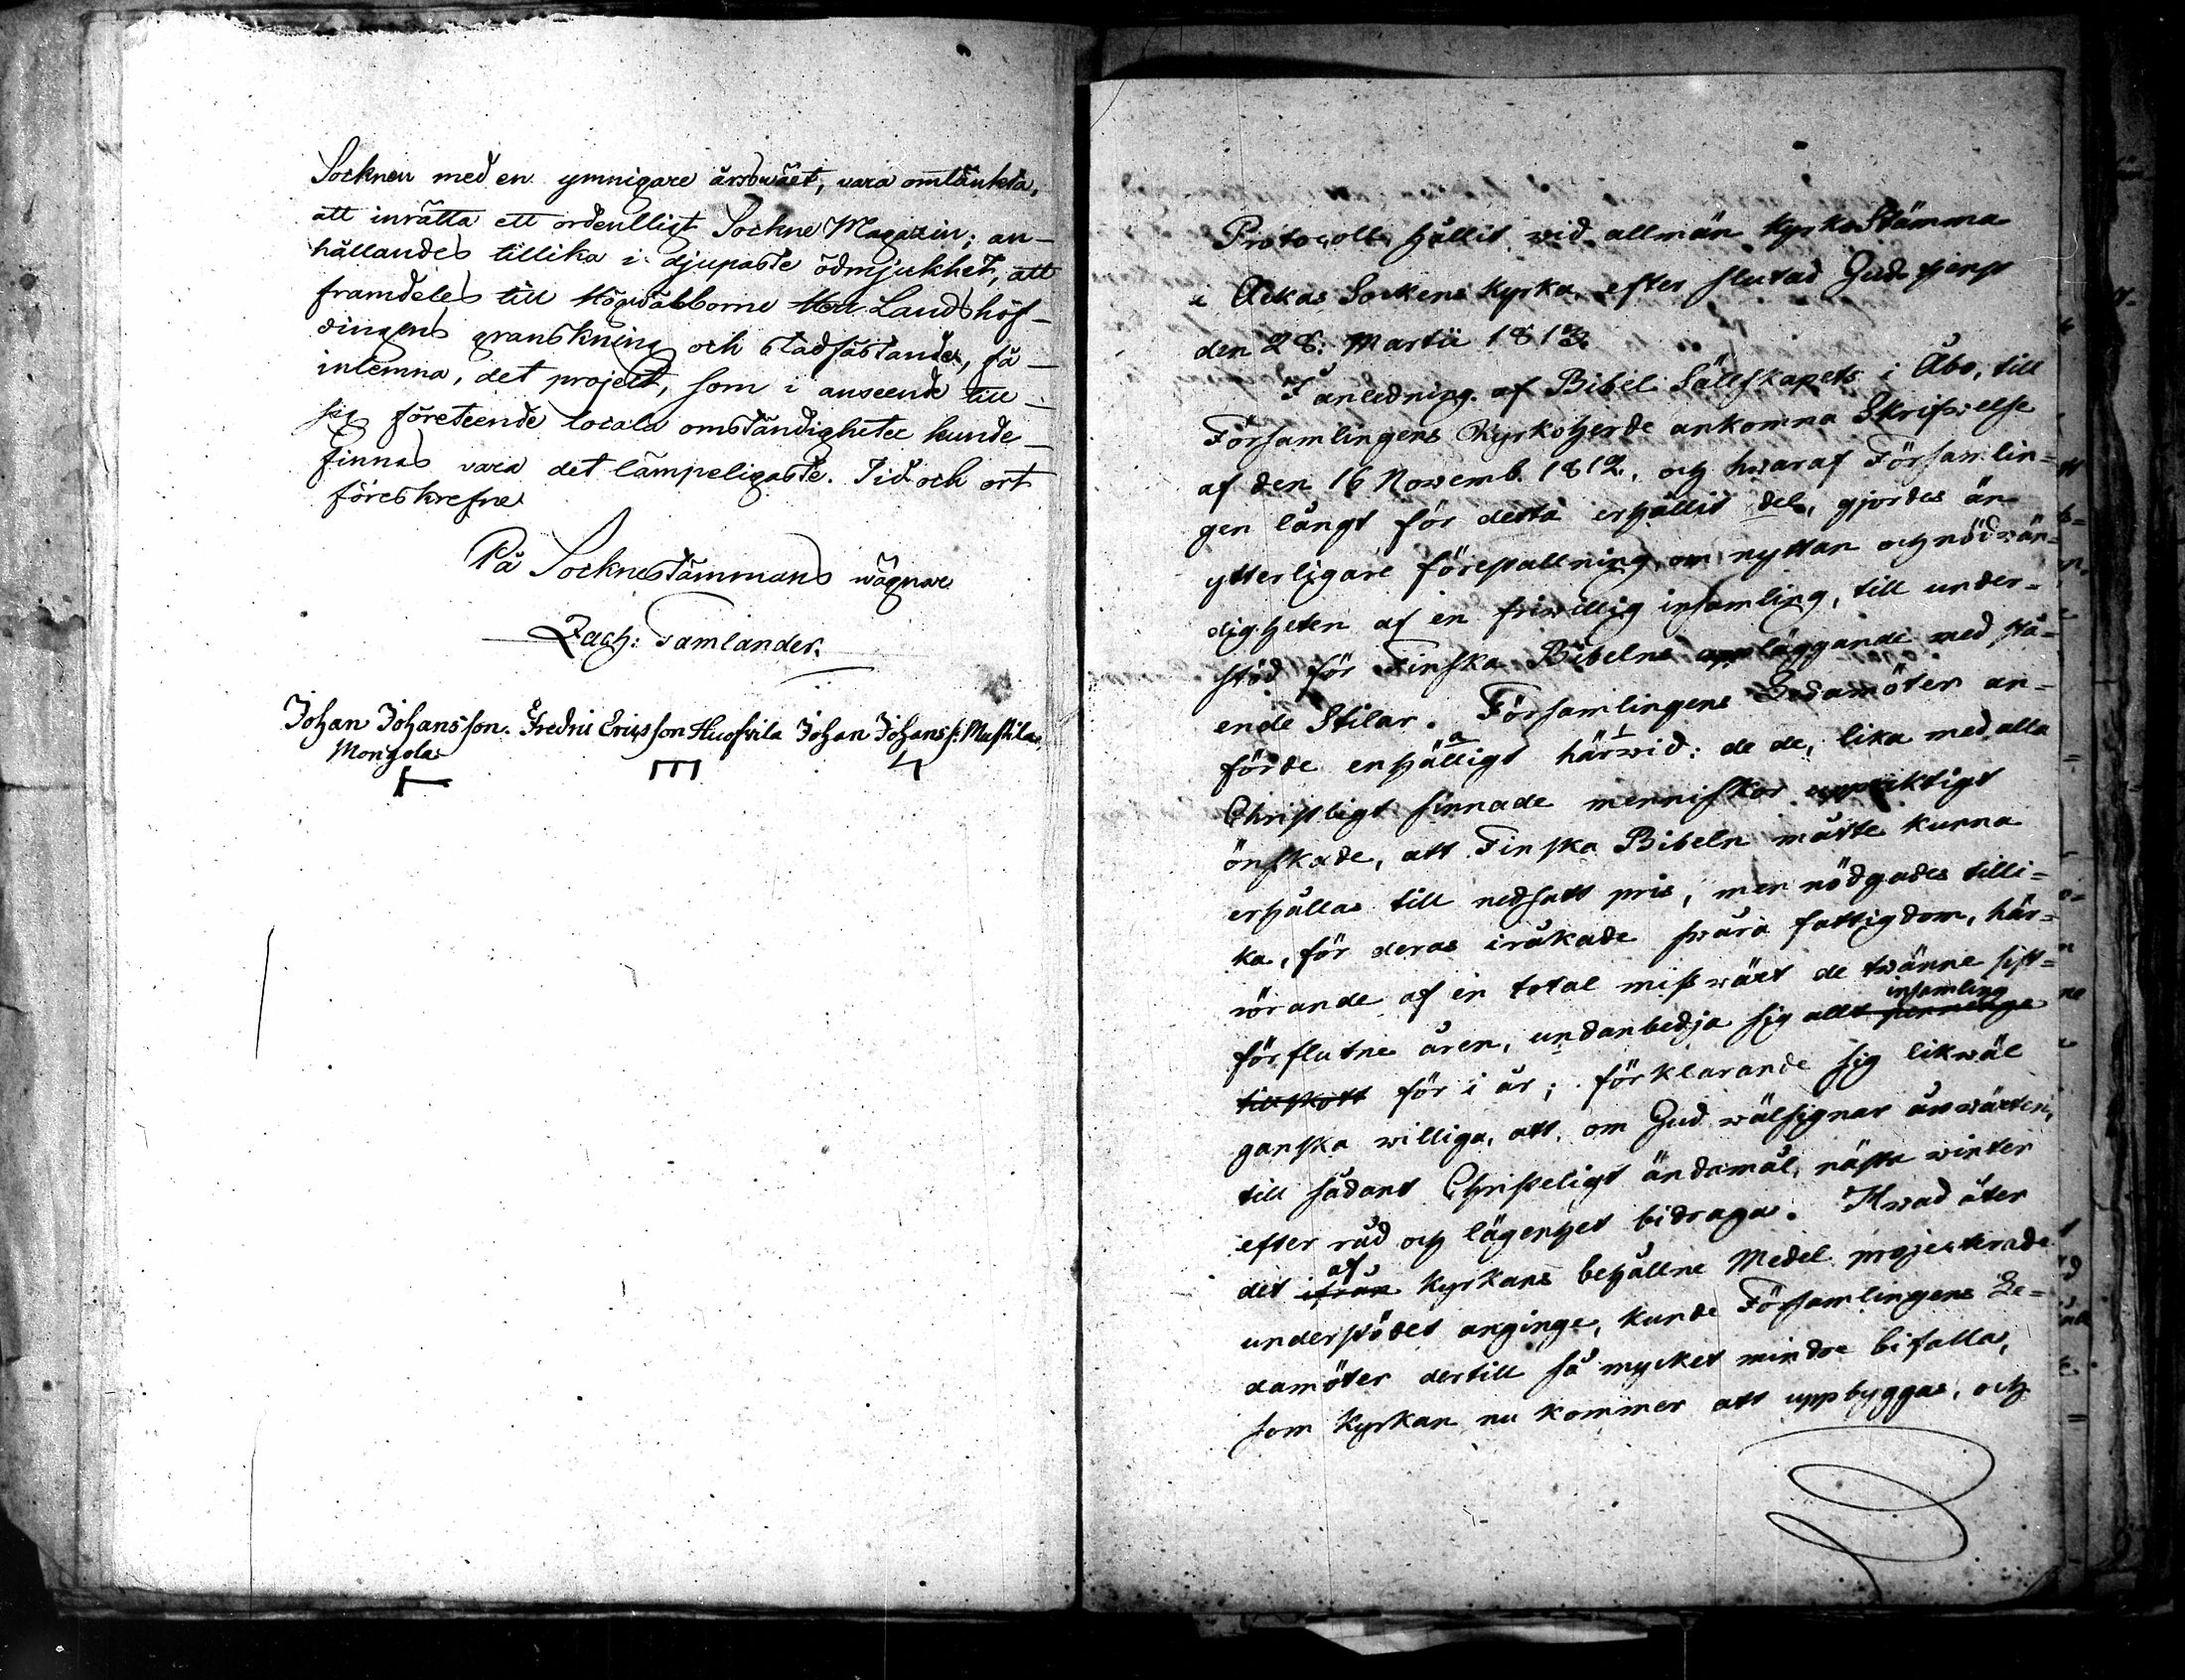 Socknen med en ymnigare årsväxt, vara omtänkta,
att inrätta ett ordentlligt Sockne Magazin; an-
hållandes tillika i djupaste ödmjukhet, att
framdeles till Högvälborne Herr Landshöf-
dingens granskning och stadfästande, få
inlemna, det project, som i anseende till
sig företeende locala omständigheter kunde
finnas vara det lämpeligaste. Tid och ort
föreskrefne
På Socknestämmans wägnar
Zach: Tamlander.
Johan Johansson. Fredric Ericsson Huofvila Johan Johanss: Mustila
Mongola
Protocoll, hållit wid allmän KyrkoStämma
i Ackas Sockens Kyrka, efter slutad Gudstjenst
den 28: Martii 1813.
I anledning af Bibel Sällskapets i Åbo, till
Församlingens Kyrkoherde ankomna Skrifwelse
af den 16 Novemb. 1812, och hwaraf Församlin-
gen långt för detta erhållit del, gjordes än
ytterligare föreställning, om nyttan och nödwän-
digheten af en friwillig insamling, till under-
stöd för Finska Bibelns uppläggande med stå-
ende Stilar. Församlingens Ledamöter an-
förde enhälligt härwid: de de, lika med alla
Christligt sinnade menniskor uppriktigt
önskade, att Finska Bibeln måtte kunna
erhållas till nedsatt pris, men nödgades tilli-
ka, för deras iråkade swåra fattigdom, här-
rörande af en total misswäxt de twänne sist-
förflutne åren, undanbedja sig allt penninge insamling
tillskott för i år; förklarande sig likwäl
ganska williga, att, om Gud wälsignar årswäxten,
till sådant Christeligt ändamål, nästa winter
efter råd och lägenhet bidraga. Hwad åter
det ifrån af Kyrkans behållne Medel projecterade
understödet anginge, kunde Församlingens Le-
damöter dertill så mycket mindre bifalla,
som Kyrkan nu kommer att uppbyggas, och